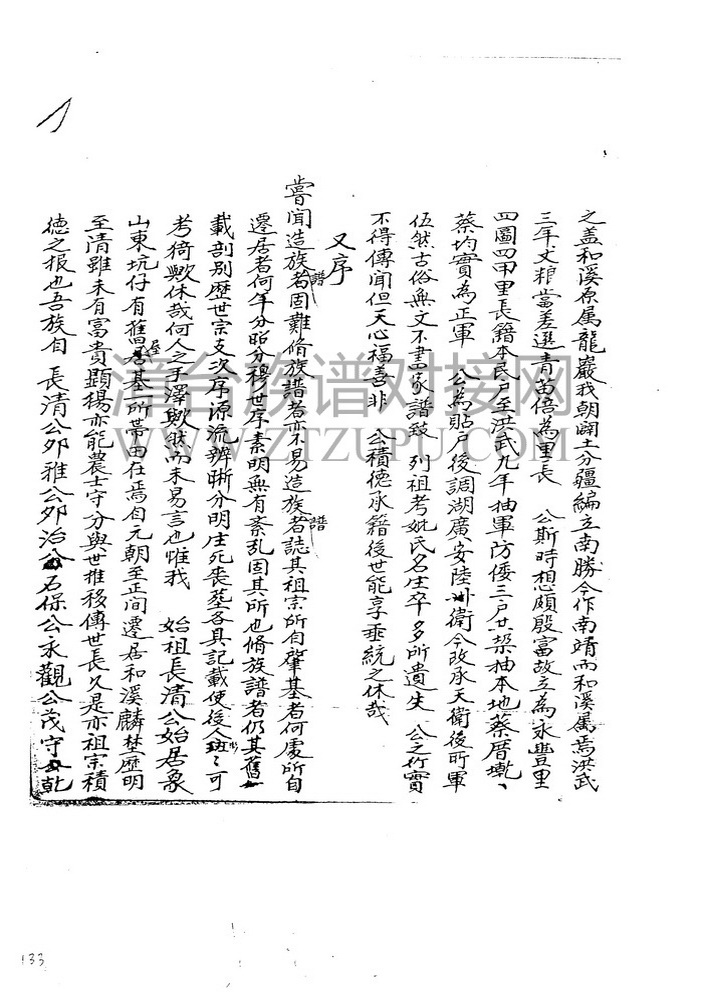 之盖和溪原属龍巖我朝闢土分疆編立南勝今作南靖而和溪属焉洪武
三年丈粮當差選青苗倍為里長 公斯時想頗殷富故立為永豐里
四圖四甲里長籍本民戶至洪武九年抽軍防倭三戶共抽本地蔡厝
蔡均實為正軍 公為貼戶後調湖廣安陸州衛今改承天衛後所軍
伍然古俗無文不書家譜致 列祖考妣氏名生卒多所遺失 公之行實
不得傳聞但天心福善非 公積德承籍後世能享垂統之休哉
又序
嘗聞造族譜者固難脩族譜者亦不易造族譜者誌其祖宗所自肇基者何處所自
遷居者何年分昭分穆世序素明無有紊乱固其所也脩族譜者仍其舊
載剖別歷世宗支次序源流辨晰分明生死喪塟各具記載使後人班班可
考猗歟休哉何人之手澤歟然而未易言也惟我 始祖長清公始居象
山東坑仔有舊居屋基一所蒂田在焉自元朝至正間遷居和溪麟埜歷明
至清雖未有富貴顕揚亦能農士守分與世推移傳世長久是亦祖宗積
德之报也吾族自 長清公卯雅公卯治公石保公永觀公茂守公乾
漳台族谱对接网
WWW.ZTZUPU.COM
133